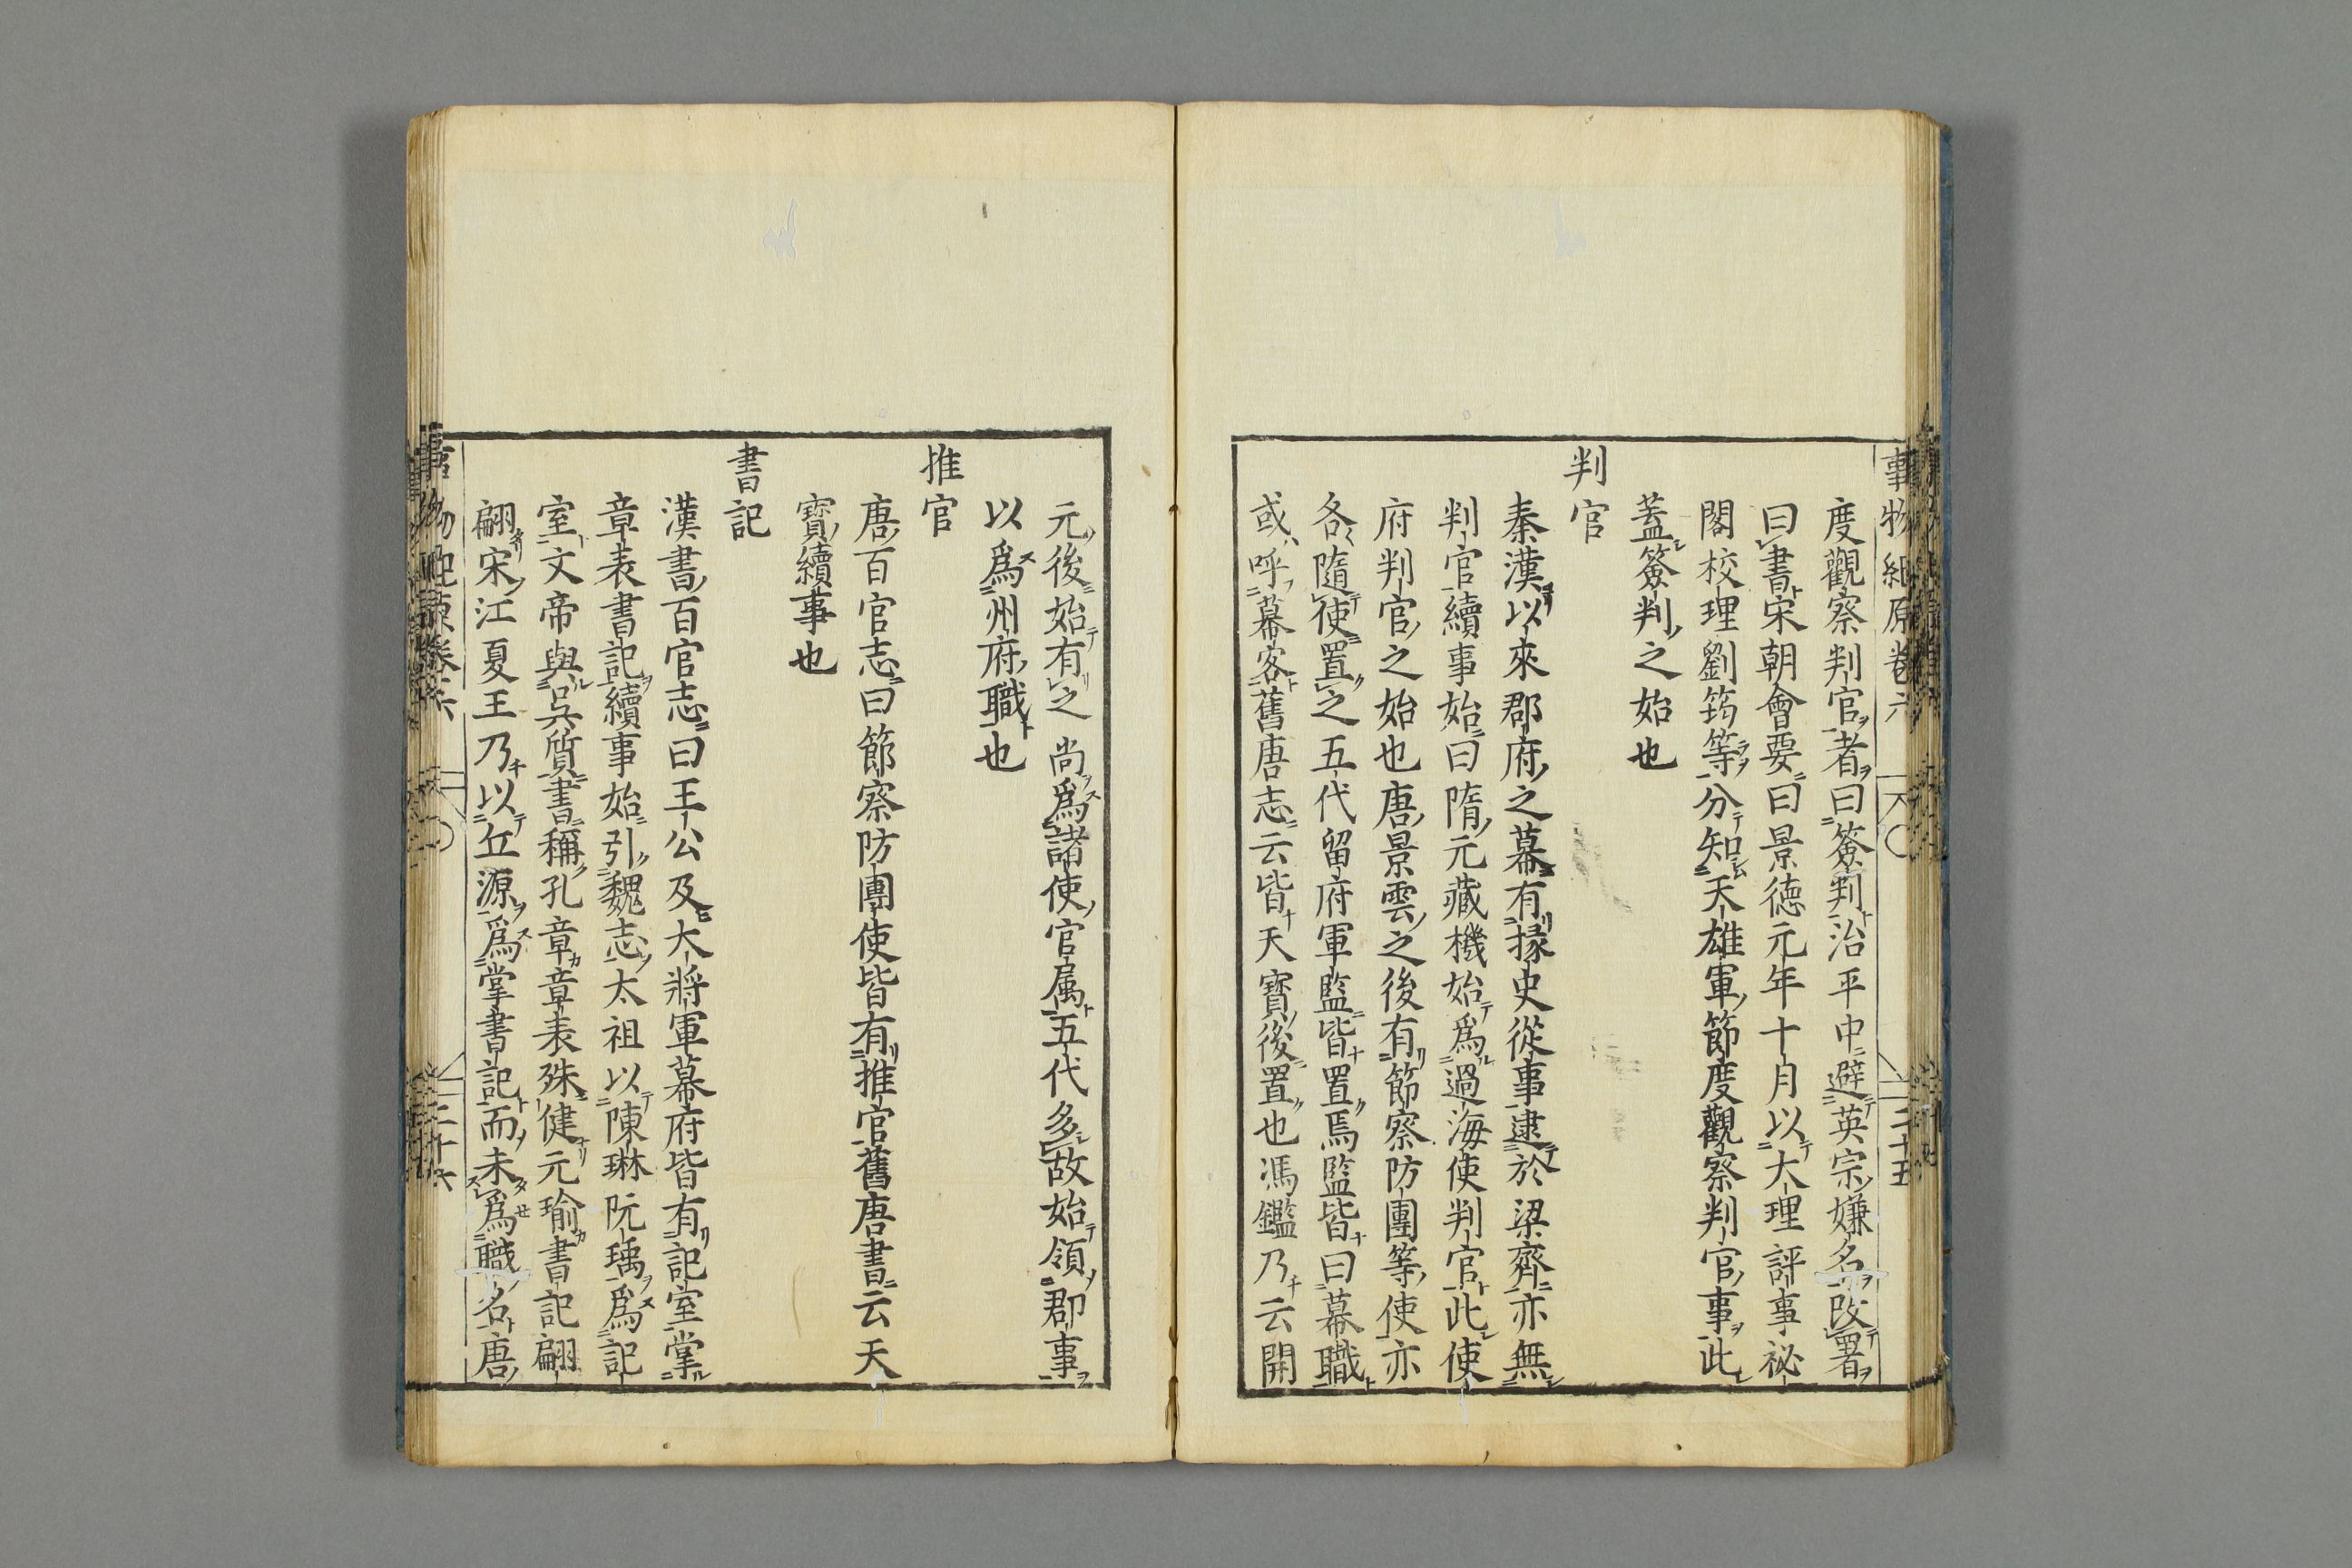 事物紀原卷六
二十五
度觀察判官者曰簽判治平中避英宗嫌名改署
曰書宋朝會要曰景德元年十月以大理評事祕
閣校理劉筠等分知天雄軍節度觀察判官事此
蓋簽判之始也
判官
秦漢以來郡府之幕有掾史從事逮於梁齊亦無
判官續事始曰隋元藏機始爲過海使判官此使
府判官之始也唐景雲之後有節察防團等使亦
各隨使置之五代留府軍監皆置焉監皆曰幕職
或呼幕客舊唐志云皆天寶後置也馮鑑乃云開
元後始有之尚爲諸使官属五代多故始領郡事
以爲州府職也
推官
唐百官志曰節察防團使皆有推官舊唐書云天
寶續事也
書記
漢書百官志曰王公及大將軍幕府皆有記室掌
章表書記續事始引魏志太祖以陳琳阮瑀爲記
室文帝與吳質書稱孔章章表殊健元瑜書記翩
翩宋江夏王乃以丘源爲掌書記而未爲職名唐
二十六